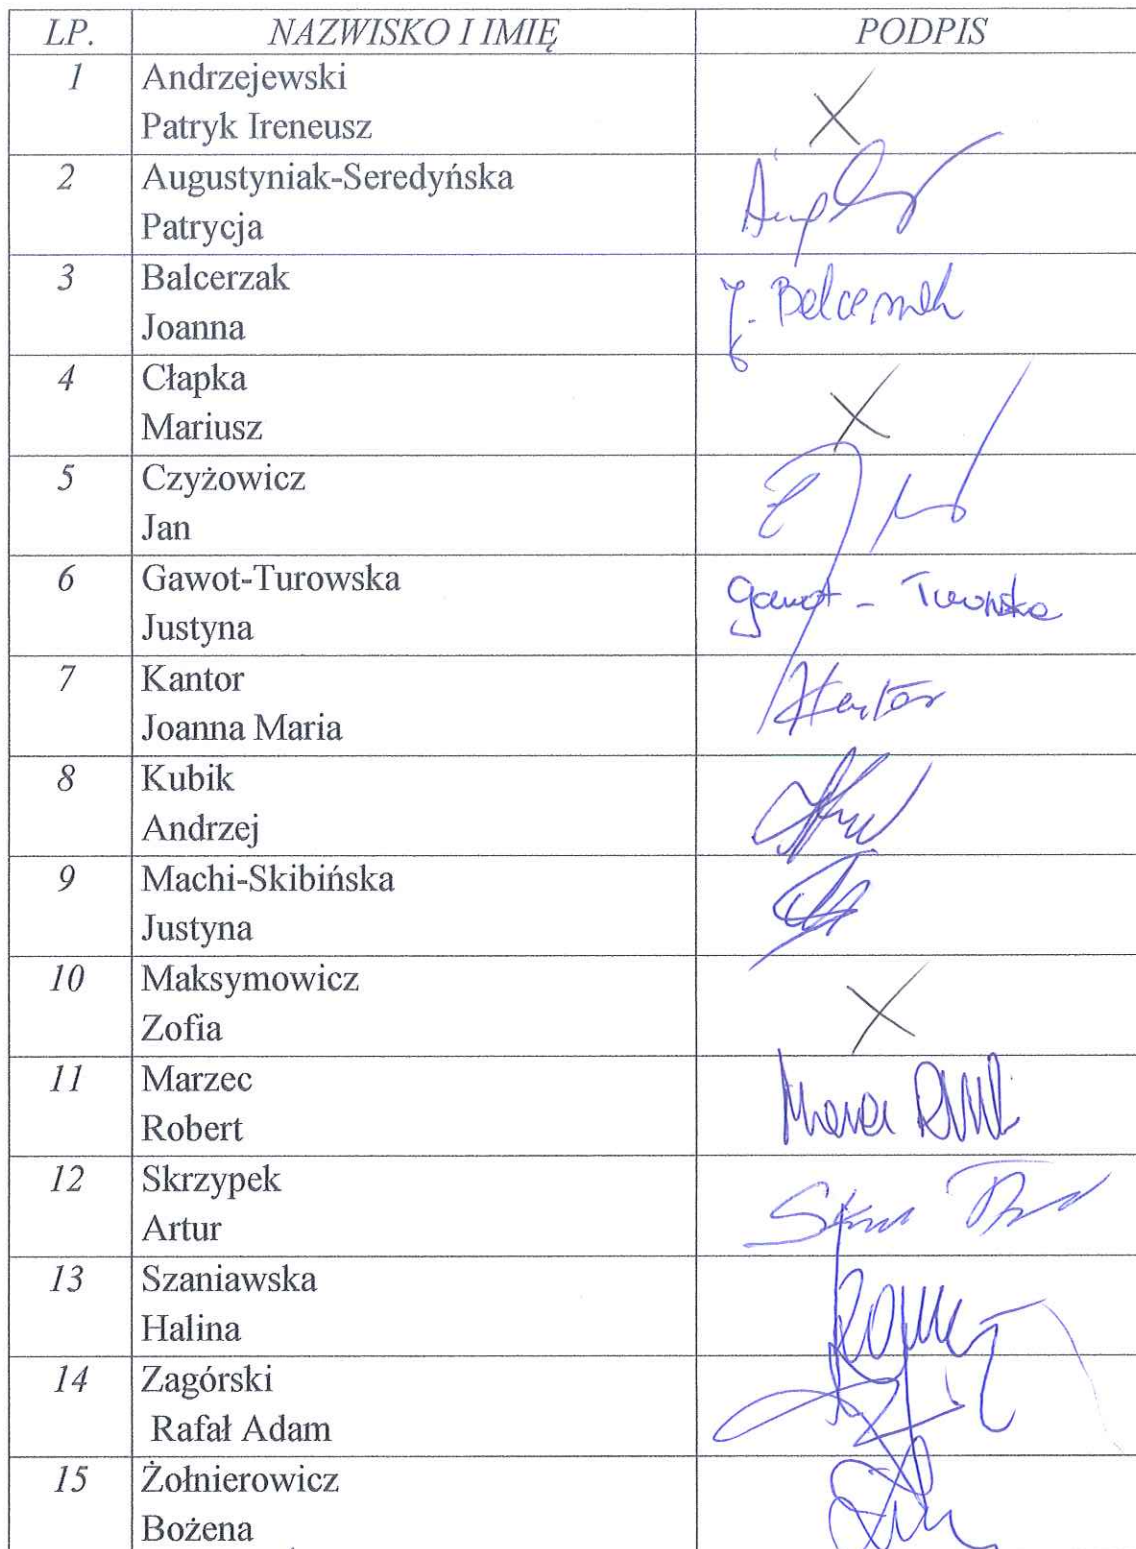 LP. NAZWISKO I IMIĘ PODPIS
1 Andrzejewski
Patryk Ireneusz X
2 Augustyniak-Seredyńska
Patrycja
3 Balcerzak J. Balcerzak
Joanna
4 Cłapka X
Mariusz
5 Czyżowicz
Jan
6 Gawot-Turowska Gawot - Turowska
Justyna
7 Kantor Kantor
Joanna Maria
8 Kubik
Andrzej
9 Machi-Skibińska
Justyna
10 Maksymowicz X
Zofia
11 Marzec Marzec
Robert
12 Skrzypek
Artur
13 Szaniawska
Halina
14 Zagórski
Rafał Adam
15 Żołnierowicz
Bożena